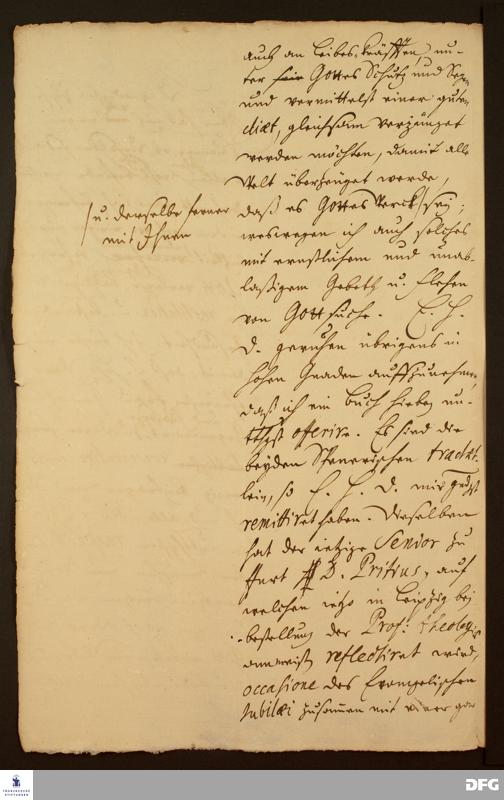 auch an Leibes-kräfften, un-
ter Gottes Schutz und Segen
und vermittelst einer guten
diæt, gleichsam verjünget
werden möchten, damit alle
Welt überzeüget werde,
daß es Gottes Werck /sey;
/u. derselbe ferner
mit Ihnen
weswegen ich auch solches
mit ernstlichem und unab-
läßigem Gebeth u. Flehen
von Gott suche. E. H.
D. geruhen übrigens in
hohen Gnaden auffzunehmen,
daß ich ein Buch hiebey un-
tthgst offerire. Es sind die
beyden Spenerischen tractæt-
lein, so E. H. D. mir gndgst
remittiret haben. Dieselben
hat der ietzige Senior zu
D. Pritius, auf
welchen ietzo in Leipzig bey
bestellung der Prof: theologiæ
reflectiret wird,
occasione des Evangelischen
Jubilæi zusammen mit einer gar
FRANCKESCHE
STIFTUNGEN
DFG